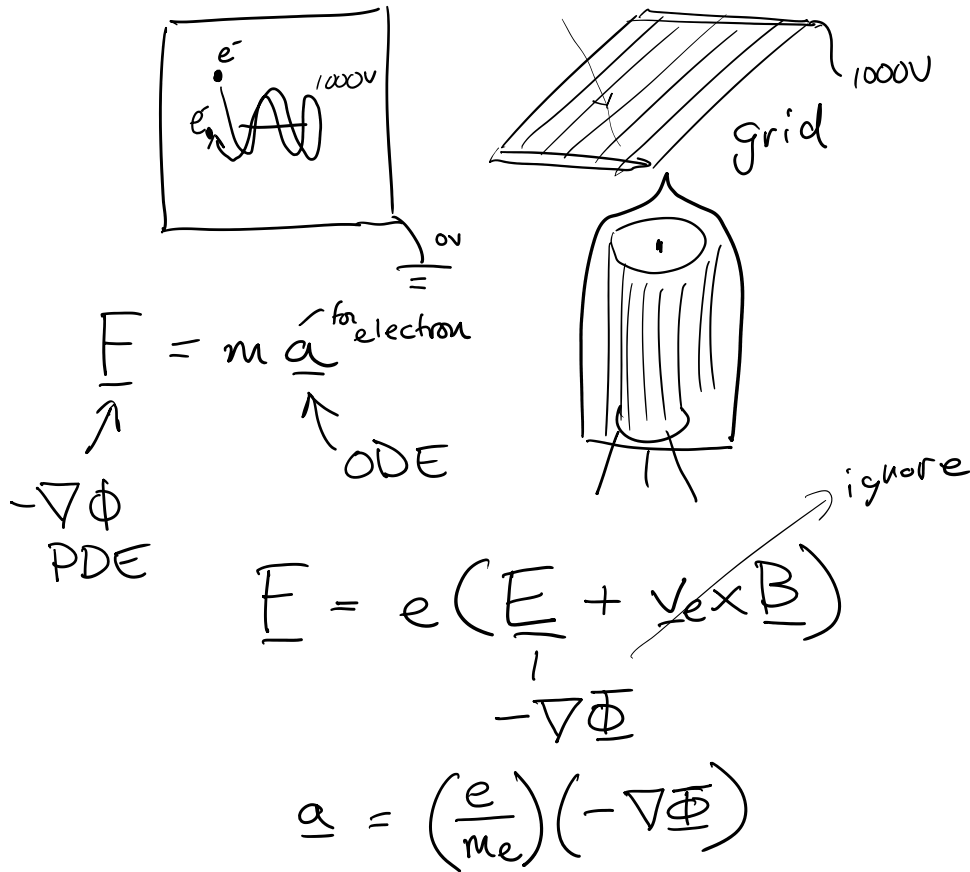 e⁻
1000V
e⁻
0V
1000V
grid
F = m a for electron
ODE
-∇Φ
PDE
ignore
F = e(E + vₑ×B)
-∇Φ
a = (e/mₑ)(-∇Φ)